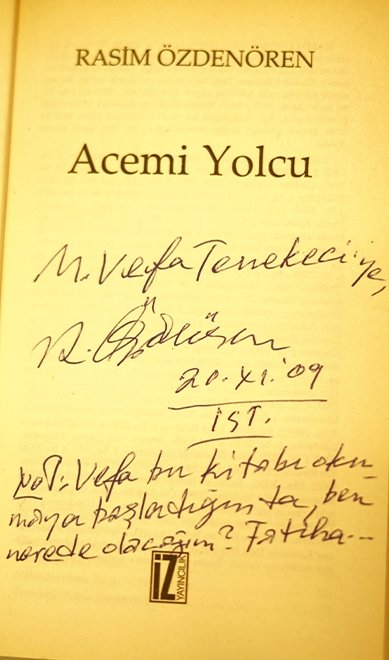 RASİM ÖZDENÖREN
Acemi Yolcu
M. Vefa Tenekeci'ye,
R. Özdenören
20.XI.'09
İST.
Not: Vefa bu kitabı oku-
maya başladığında, ben
nerede olacağım? Fatiha...
İZ
YAYINCILIK